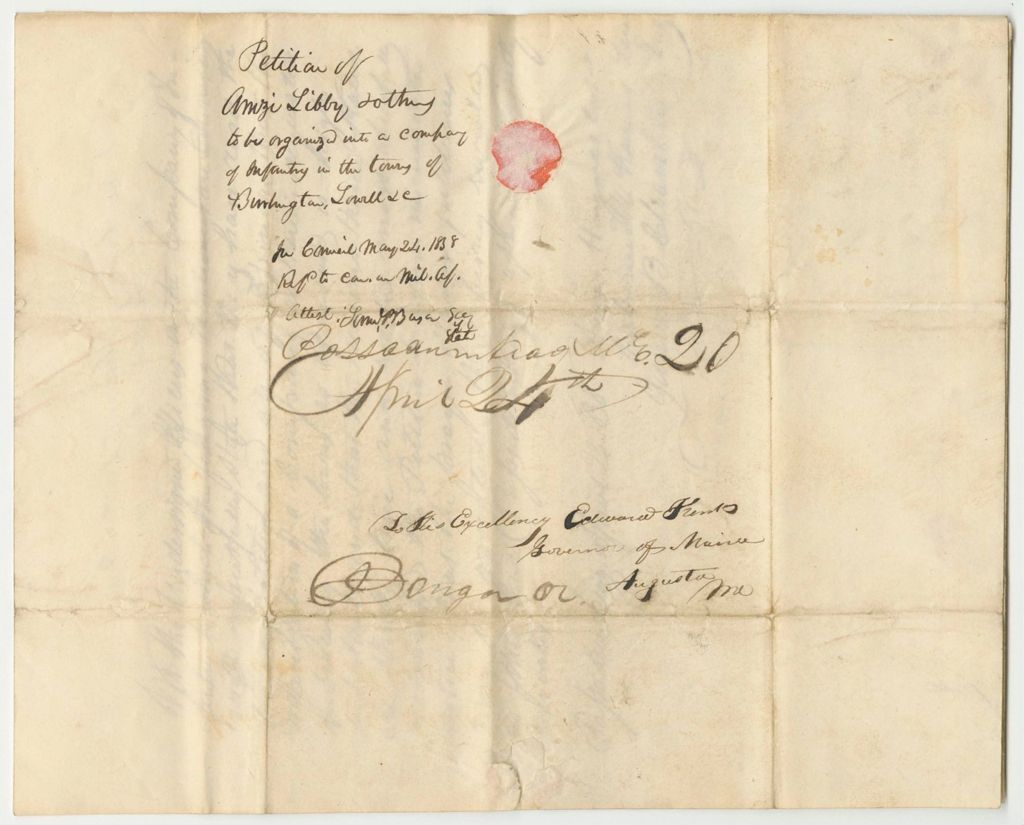 Petition of
Amzi Libby & others
to be organized into a company
of Infantry in the towns of
Burlington, Lowell &c
In Council May 24. 1838
Ref^d to Com. on Mil. Af.
Attest: Sam^l P. Benson Sec^y
of State
Passadumkeag Me. 20
April 24th
To His Excellency Edward Kent
Governor of Maine
Augusta
Me
Bangor or